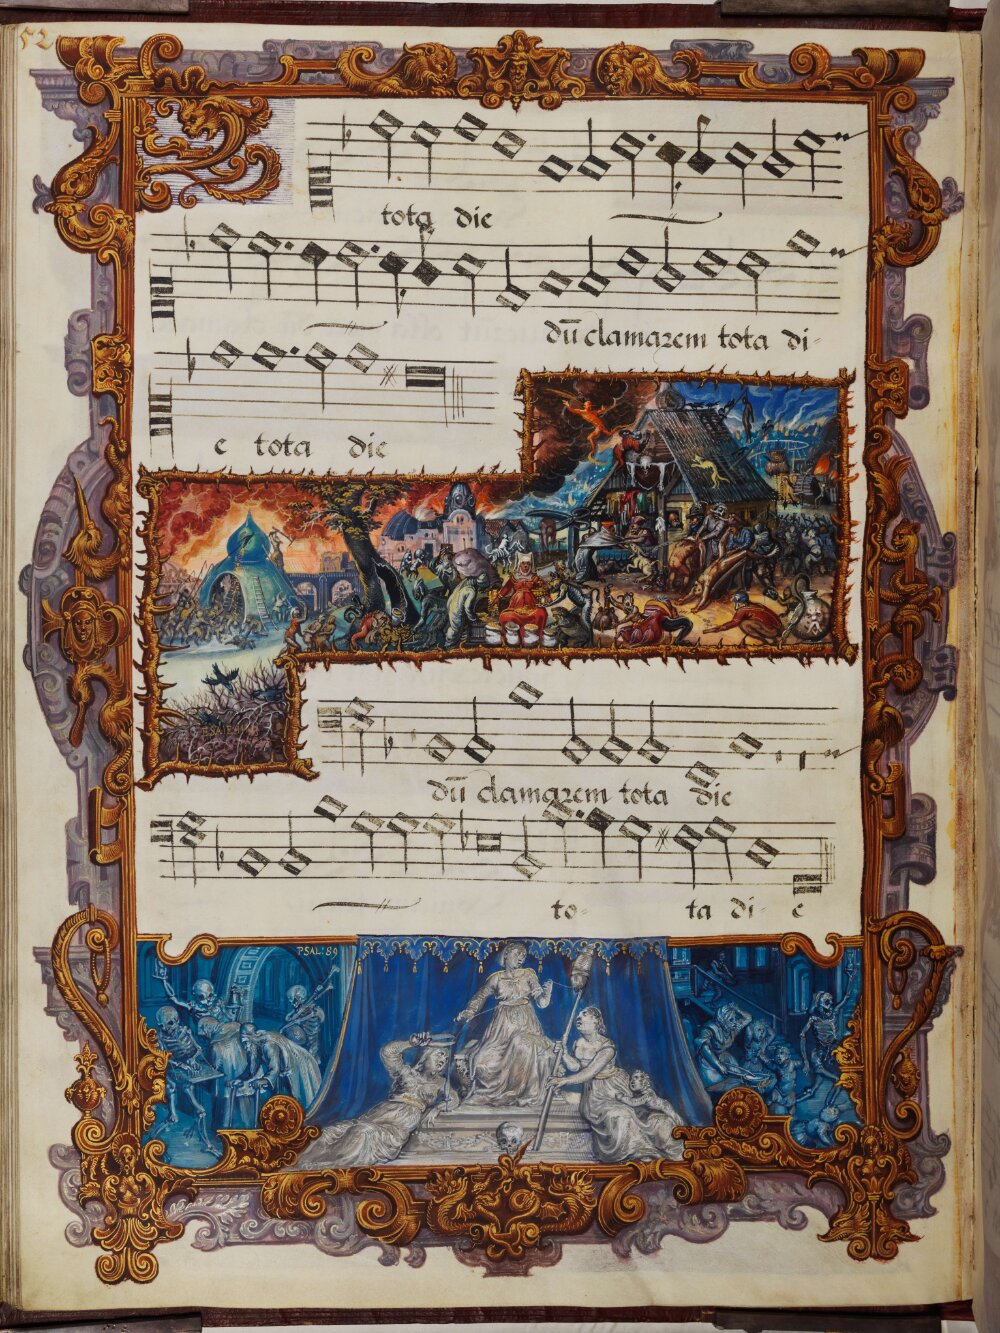 52
tota die
dũ clamarem tota di-
e tota die
dũ clamarem tota die
to- ta di- e
PSAL: 89